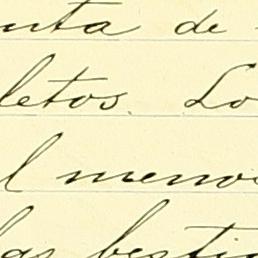 nta de
letos. Lo
l menos
las bestia